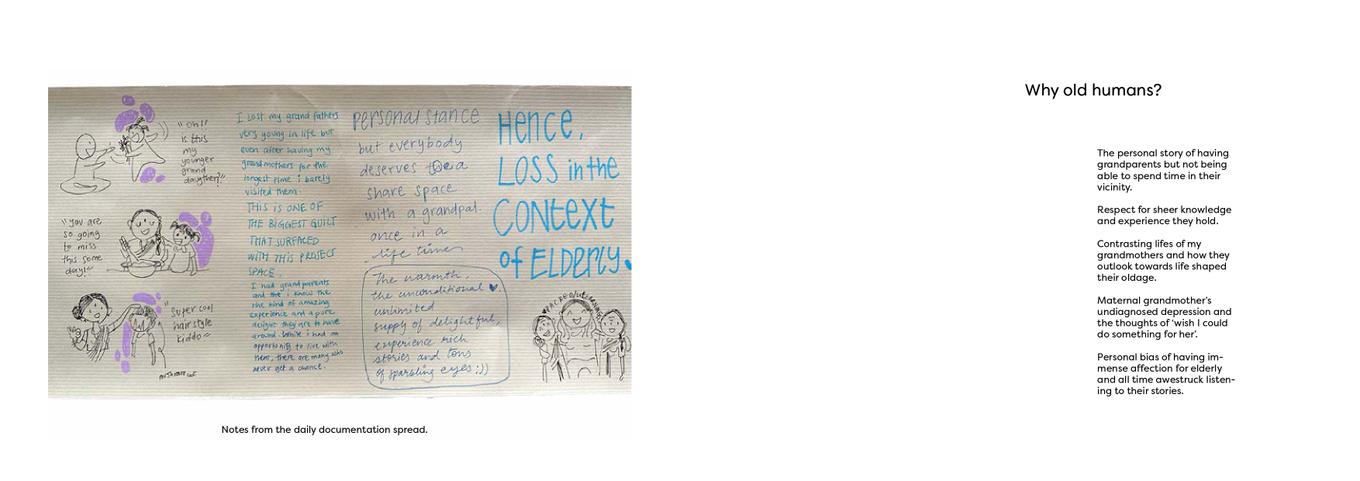 "Oh!!
is this
my
younger
grand
daughter?"
"You are
so going
to miss
this some
day!~
"Super cool
hair style
kiddo~
I lost my grand fathers
very young in life but
even after having my
grandmothers for the
longest time i barely
visited them.
THIS IS ONE OF
THE BIGGEST GUILT
THAT SURFACED
WITH THIS PROJECT
SPACE.
I had grandparents
and i know the
the kind of amazing
experience and a pure
delight they are to have
around. While i had an
opportunity to live with
them, there are many who
never get a chance.
personal stance
but everybody
deserves to
share space
with a grandpal
once in a
life time
The warmth,
the unconditional ♥,
unlimited
supply of delightful,
experience rich
stories and tons
of sparkling eyes :))
Hence,
LOSS in the
CONTEXT
of ELDERLY
Notes from the daily documentation spread.
Why old humans?
The personal story of having
grandparents but not being
able to spend time in their
vicinity.
Respect for sheer knowledge
and experience they hold.
Contrasting lifes of my
grandmothers and how they
outlook towards life shaped
their oldage.
Maternal grandmother's
undiagnosed depression and
the thoughts of 'wish I could
do something for her'.
Personal bias of having im-
mense affection for elderly
and all time awestruck listen-
ing to their stories.